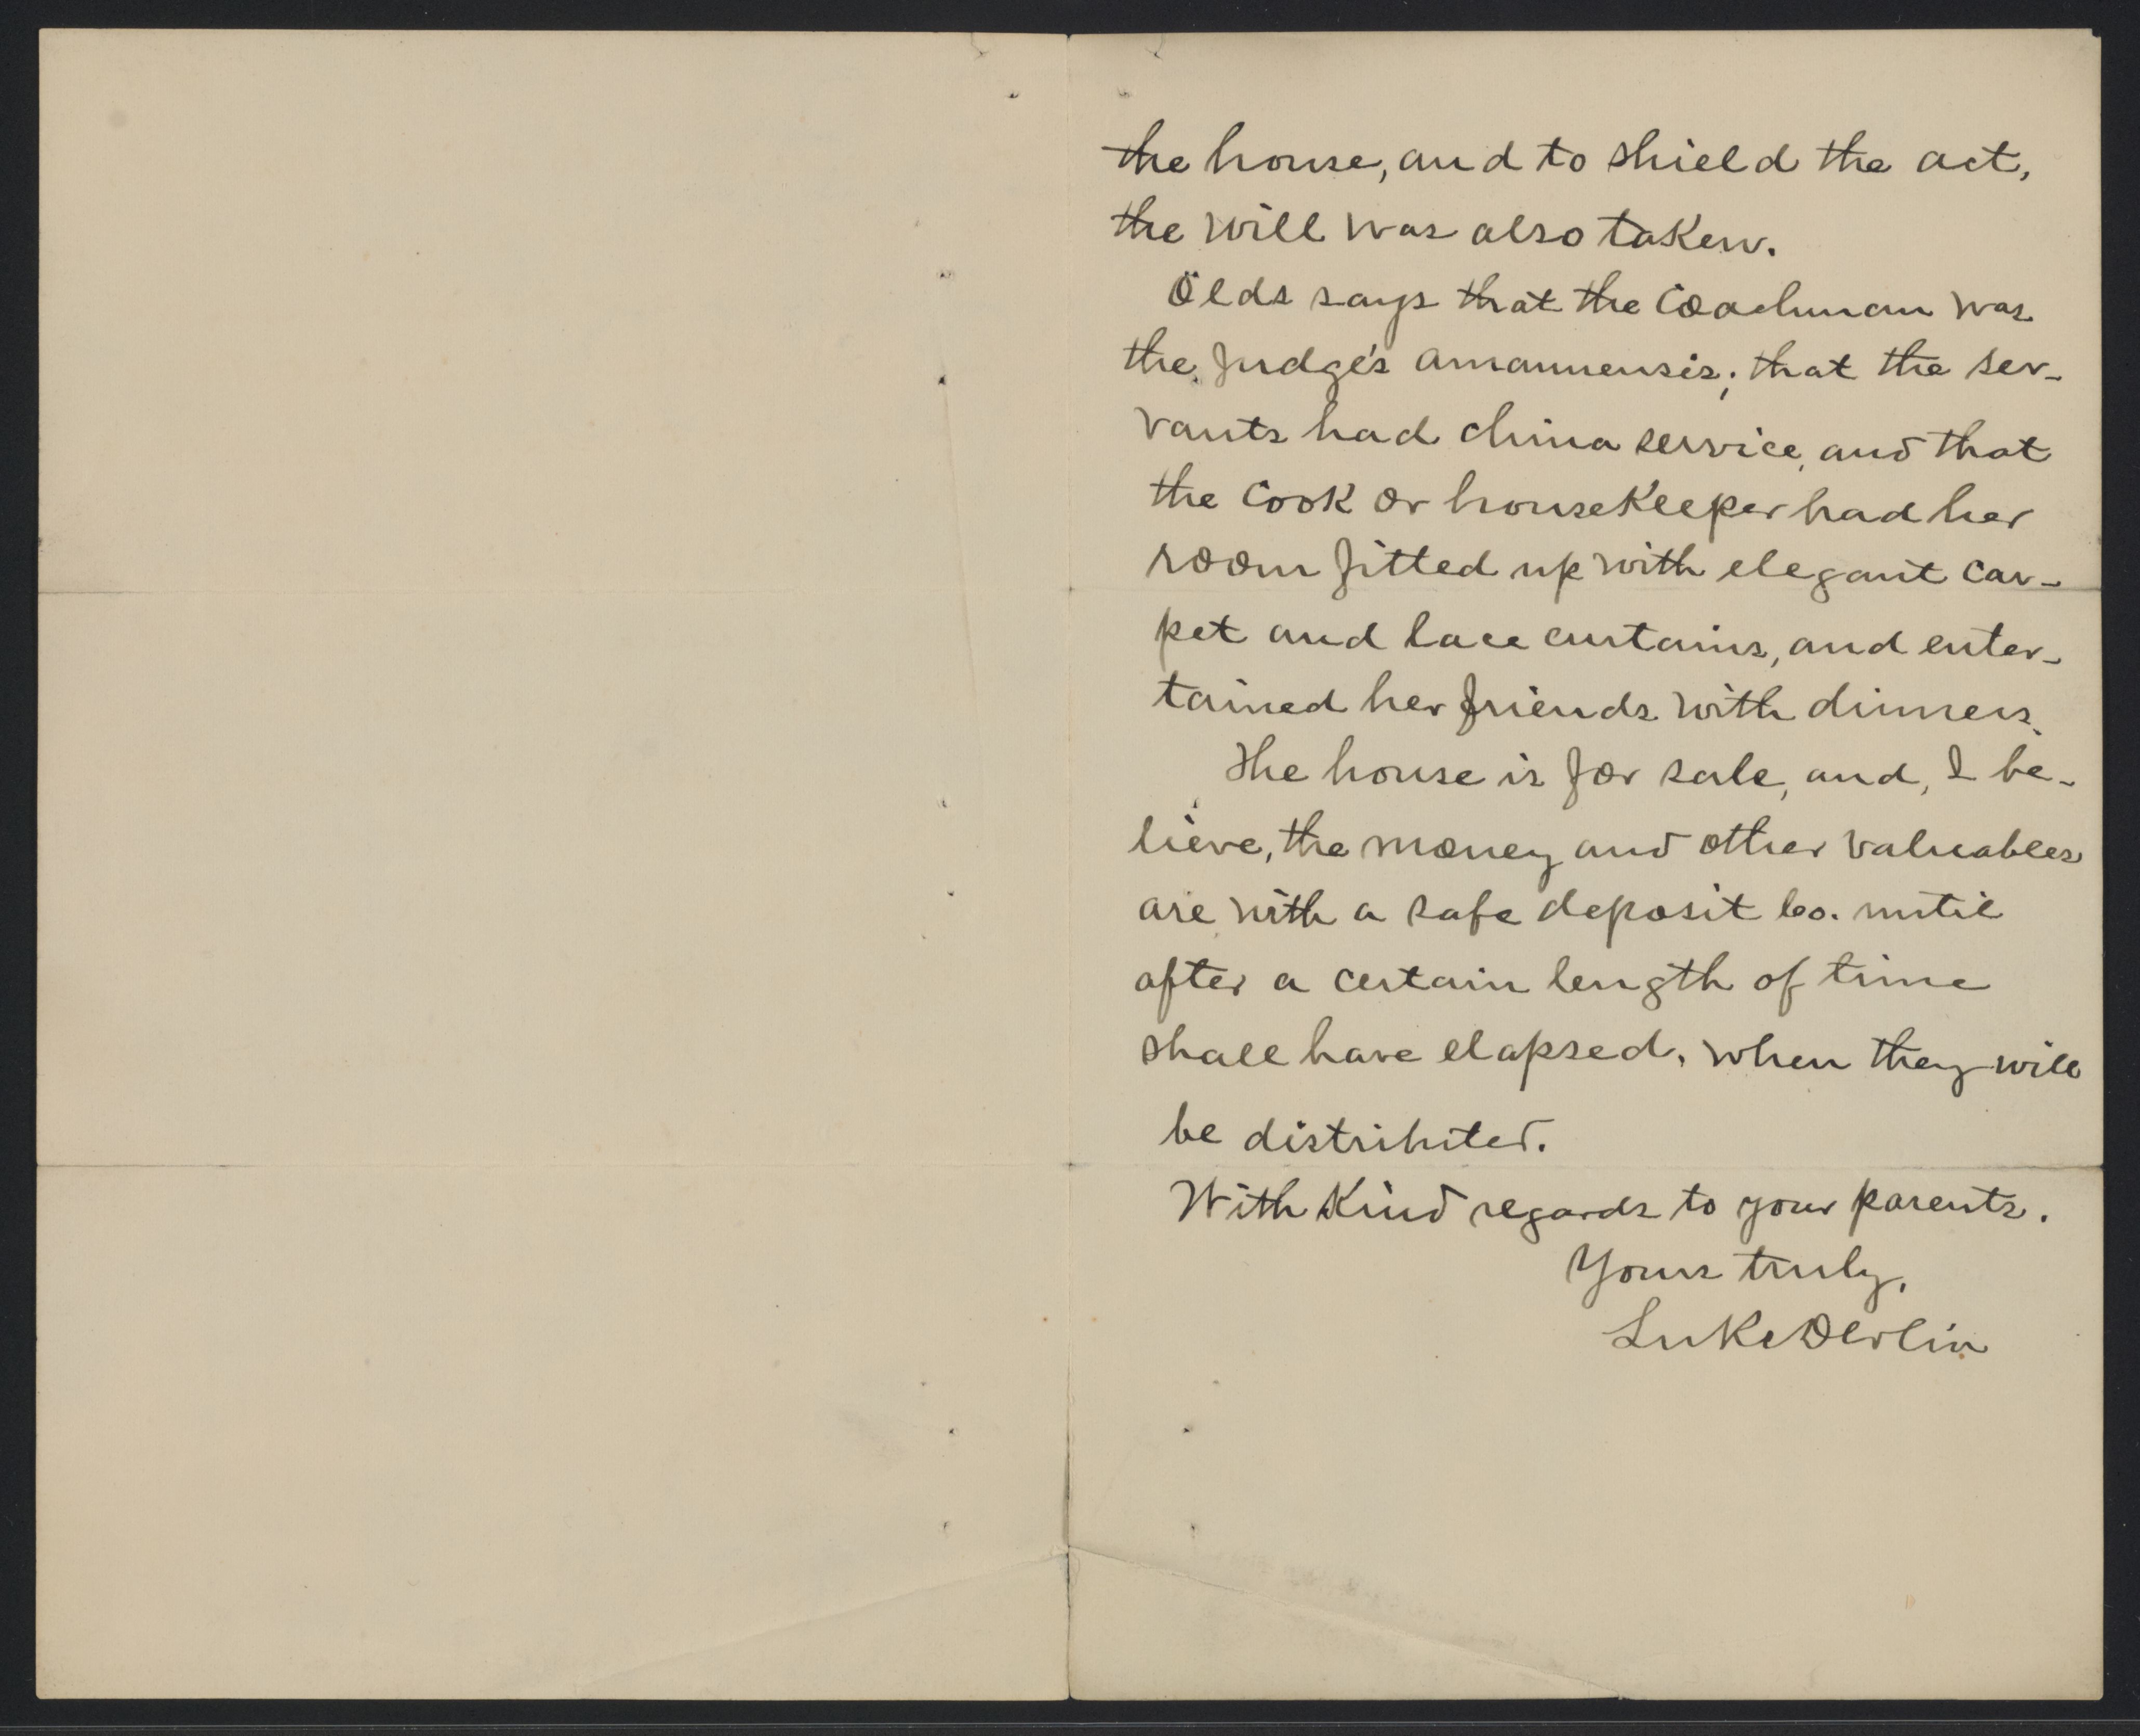 the house, and to shield the act,
the will was also taken.
Olds says that the coachman was
the Judge's amanuensis; that the ser-
vants had china service, and that
the cook or housekeeper had her
room fitted up with elegant car-
pet and lace curtains, and enter-
tained her friends with dinners.
The house is for sale, and, I be-
lieve, the money and other valuables
are with a safe deposit Co. until
after a certain length of time
shall have elapsed, when they will
be distributed.
With kind regards to your parents.
Yours truly,
Luke Devlin